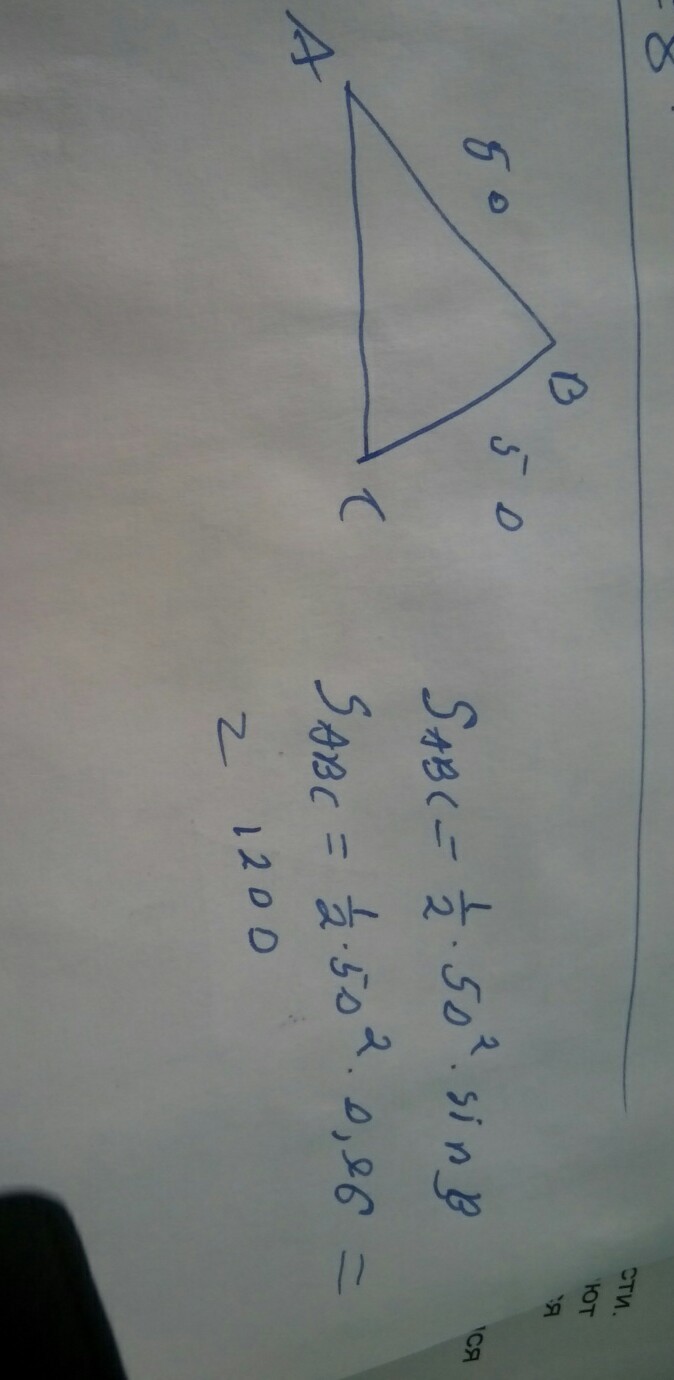 8
A
50
B
50
C
SABC = 1/2 · 50² · sin B
SABC = 1/2 · 50² · 0,96 =
= 1200
сти.
ют
ся